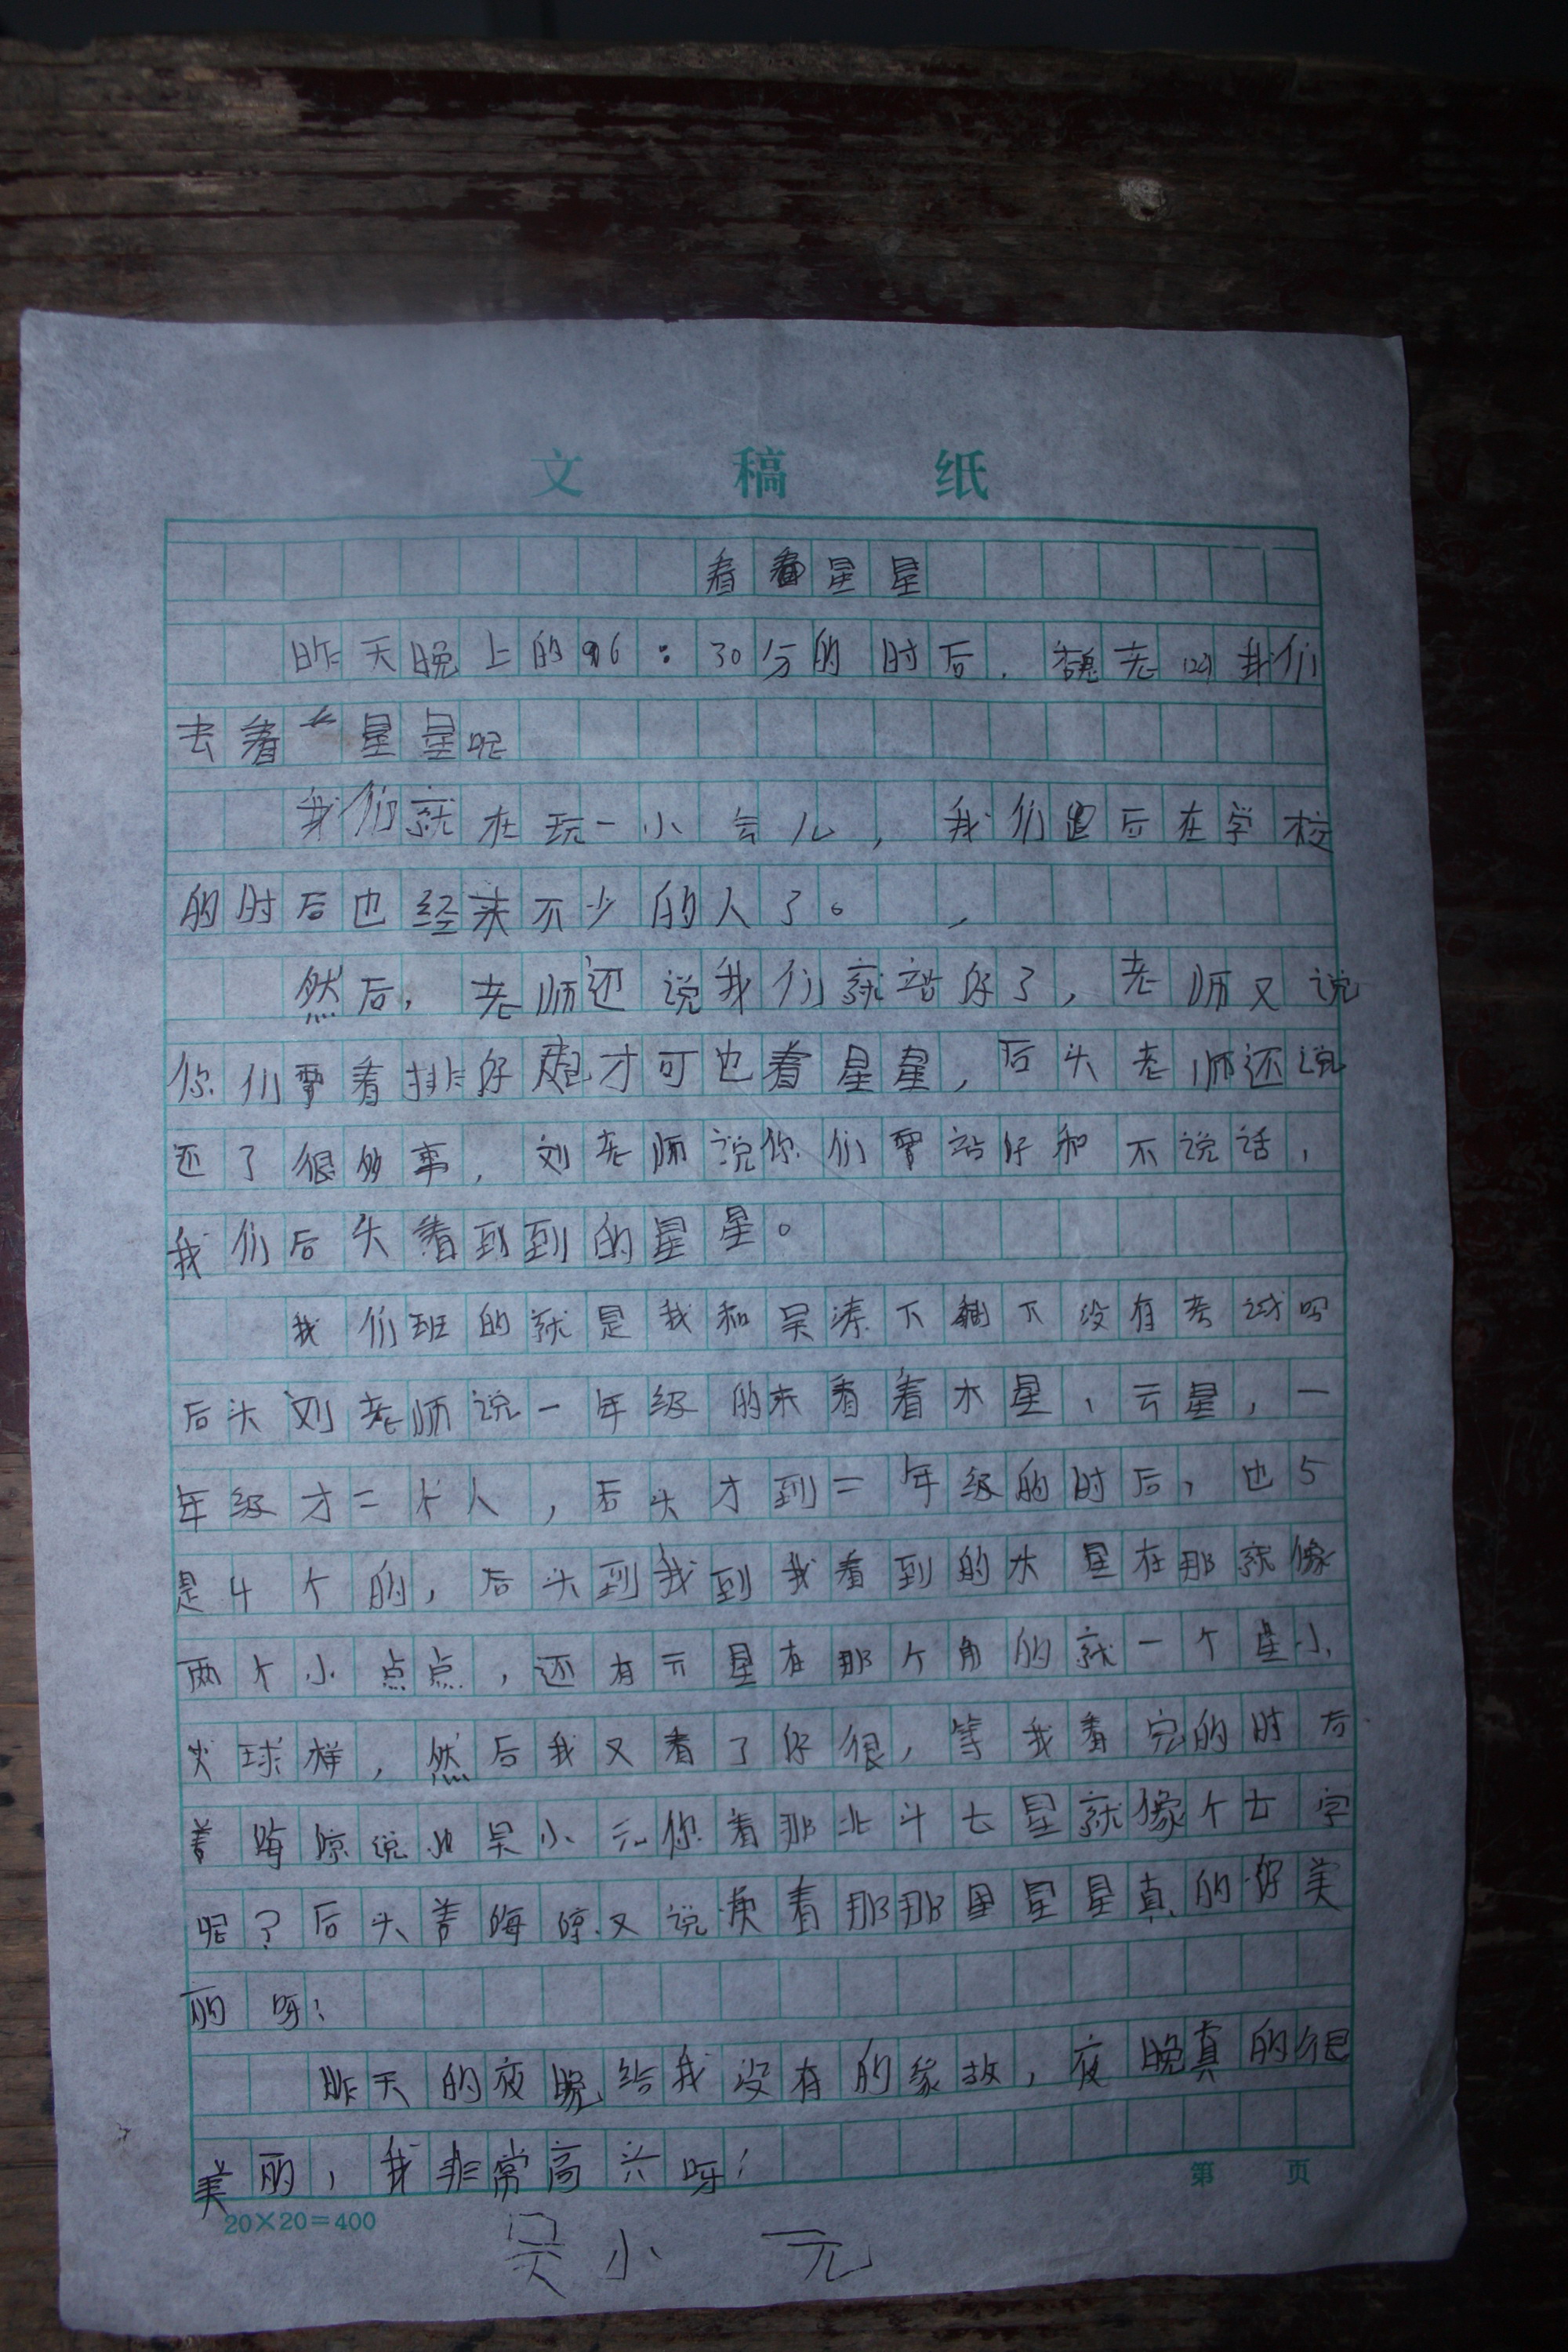 文稿纸
看星星
昨天晚上的6:30分的时后,魏老叫我们
去看星星呢
我们就在玩一小会儿,我们后在学校
的时后也经来不少的人了。
然后,老师还说我们就站好了,老师又说
你们要看排好才可也看星星,后头老师还说
还了很多事,刘老师说你们要站好和不说话,
我们后头看到到的星星。
我们班的就是我和吴涛下下没有考试吗
后头刘老师说一年级的来看看木星、云星,一
年级才二个人,后头才到二年级的时后,也5
是4个的,后头到我到我看到的木星在那就像
两个小点点,还有云星在那个角的就一个是小
火球样,然后我又看了好很,等我看完的时后
说吴小元你看那北斗七星就像个七字
呢?后头又说看那那里星星真的好美
丽呀!
昨天的夜晚给我没有的缘故,夜晚真的很
美丽,我非常高兴呀!
第 页
20×20=400
吴小元